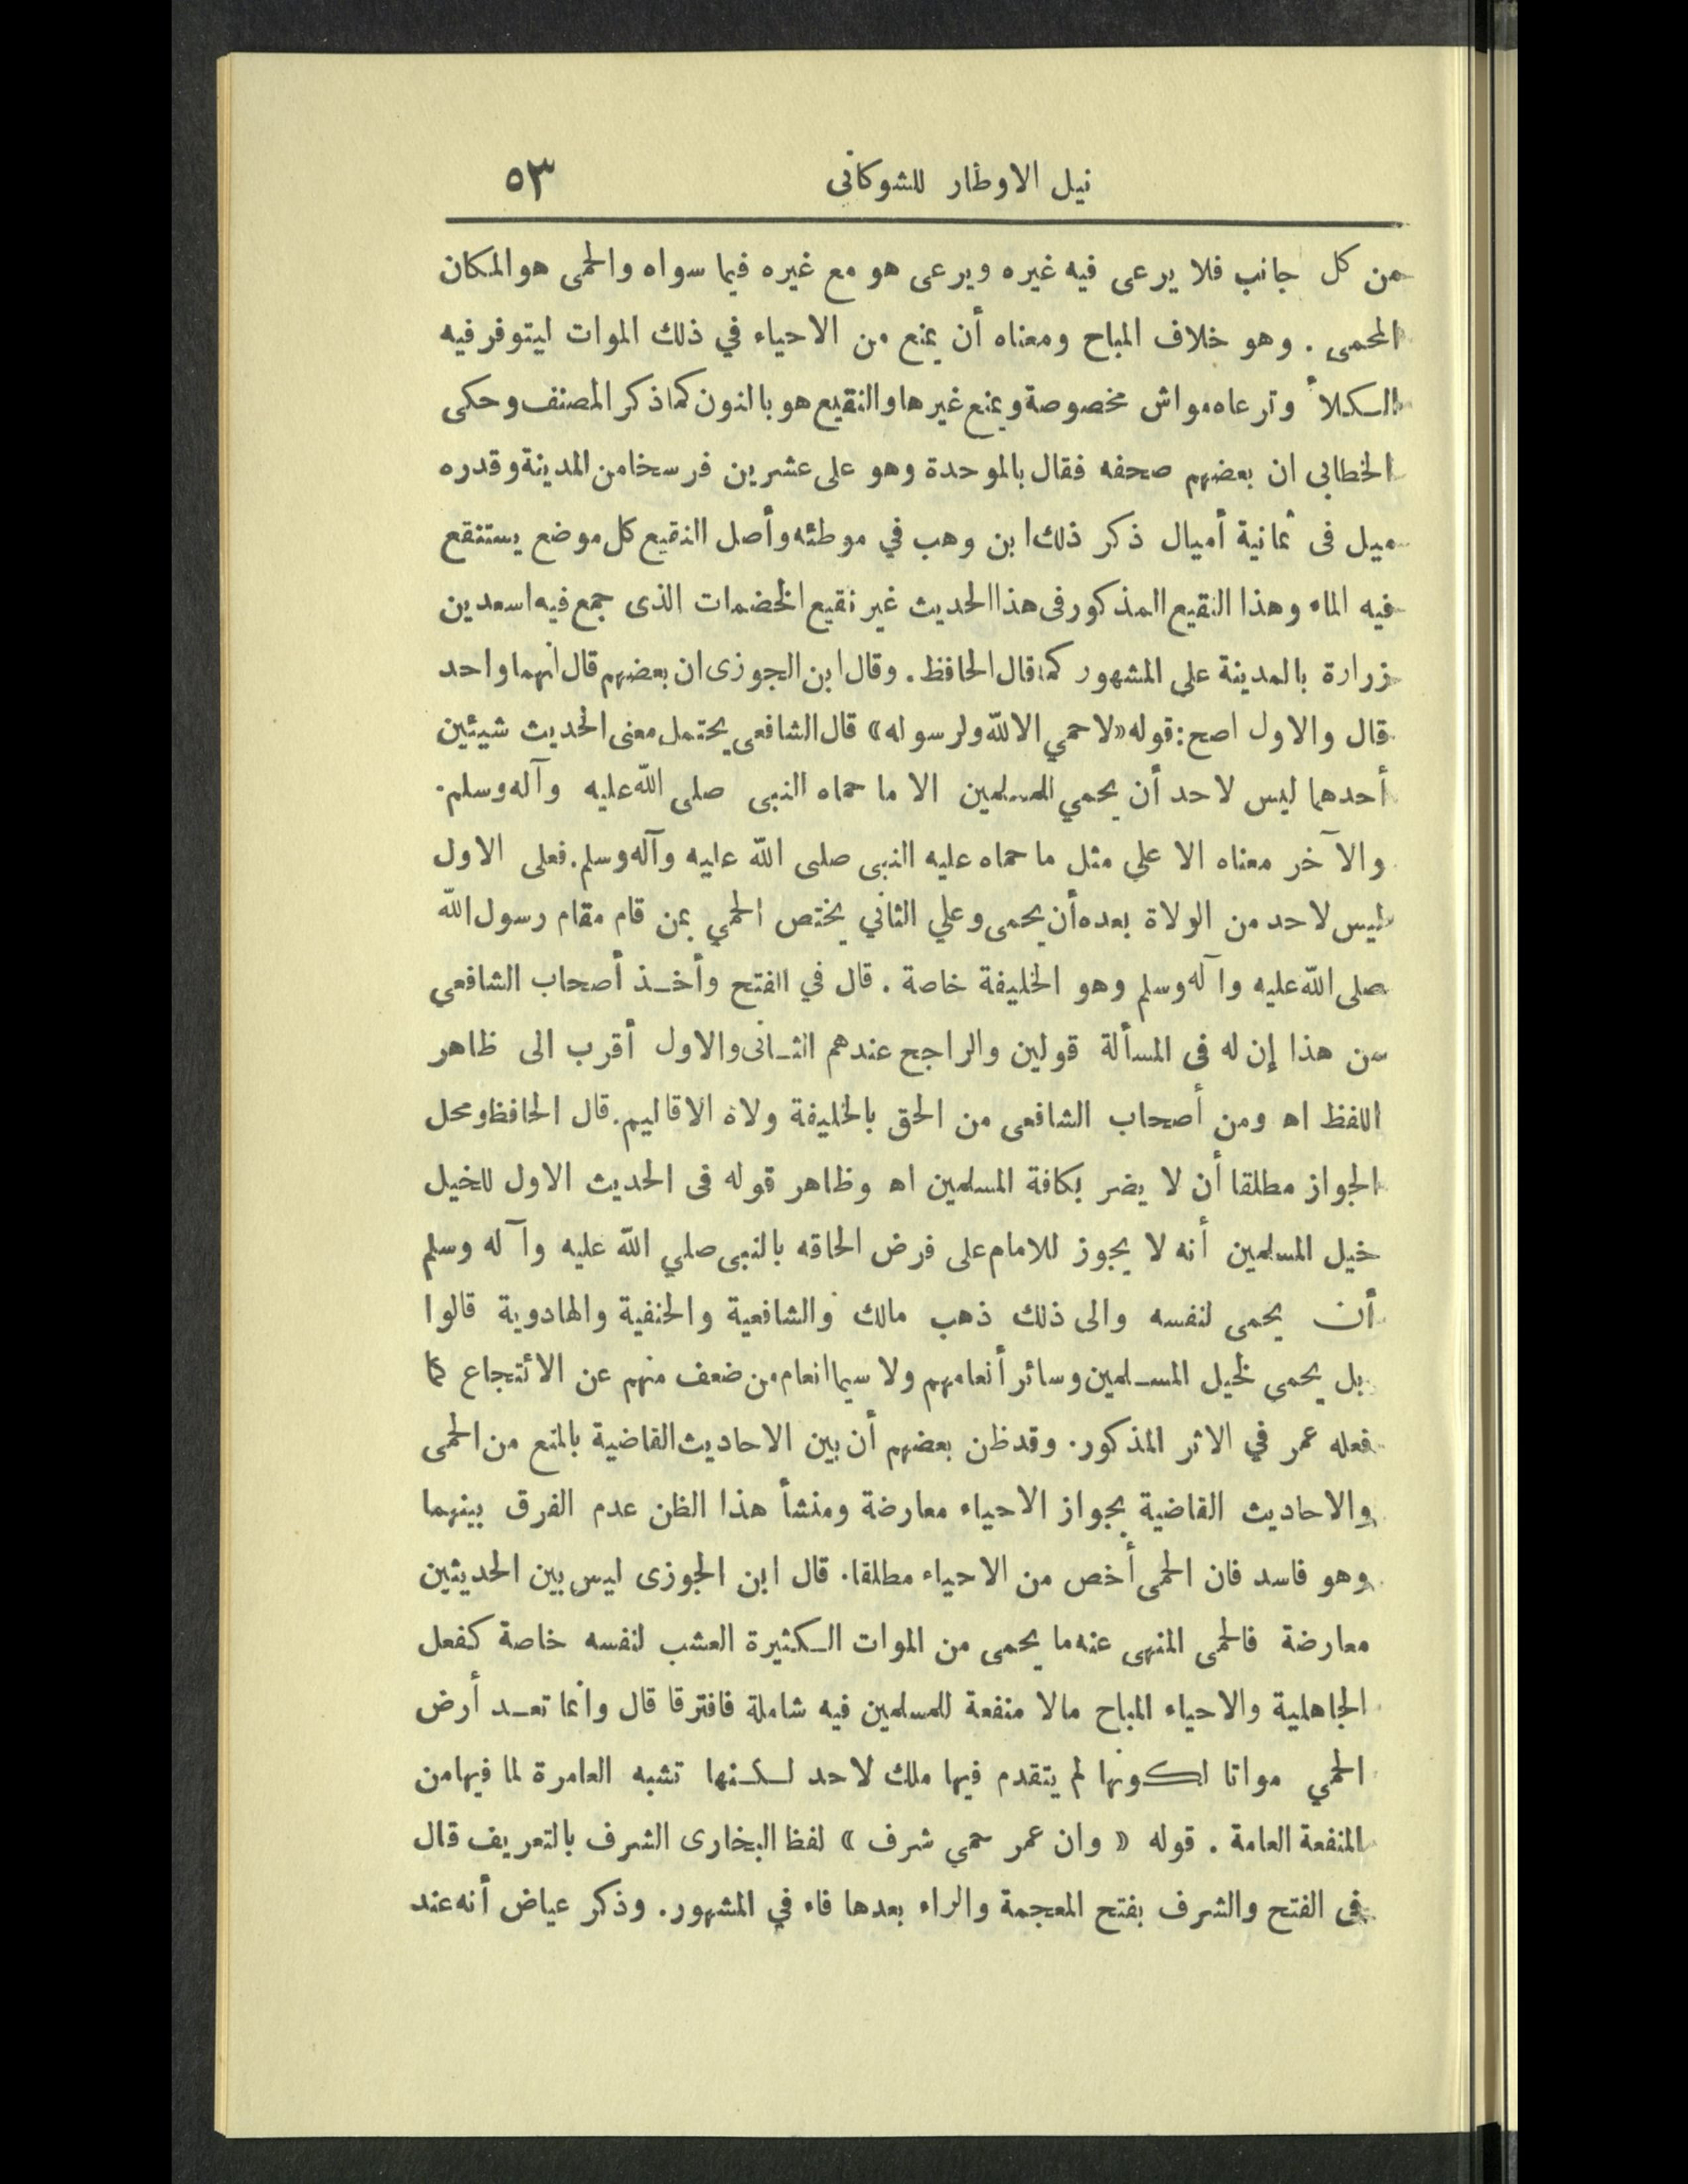 نيل الاوطار للشوكانى ٥٣
من كل جانب فلا يرعى فيه غيره ويرعى هو مع غيره فيما سواه والحمى هو المكان
المحمى . وهو خلاف المباح ومعناه أن يمنع من الاحياء في ذلك الموات ليتوفر فيه
الكلأ وترعاه مواش مخصوصة ويمنع غيرها والنقيع هو بالنون كما ذكر المصنف وحكى
الخطابى ان بعضهم صحفه فقال بالموحدة وهو على عشرين فرسخا من المدينة وقدره
ميل فى ثمانية أميال ذكر ذلك ابن وهب في موطئه وأصل النقيع كل موضع يستنقع
فيه الماء وهذا النقيع المذكور فى هذا الحديث غير نقيع الخضمات الذى جمع فيه اسعد بن
زرارة بالمدينة على المشهور كما قال الحافظ . وقال ابن الجوزى ان بعضهم قال انهما واحد
قال والاول اصح : قوله «لا حمي الا لله ولرسوله» قال الشافعى يحتمل معنى الحديث شيئين
أحدهما ليس لاحد أن يحمي للمسلمين الا ما حماه النبى صلى الله عليه وآله وسلم .
والآخر معناه الا علي مثل ما حماه عليه النبى صلى الله عليه وآله وسلم . فعلى الاول
ليس لاحد من الولاة بعده أن يحمى وعلي الثاني يختص الحمي بمن قام مقام رسول الله
صلى الله عليه وآله وسلم وهو الخليفة خاصة . قال في الفتح وأخذ أصحاب الشافعي
من هذا إن له فى المسألة قولين والراجح عندهم الثانى والاول أقرب الى ظاهر
اللفظ اه ومن أصحاب الشافعى من الحق بالخليفة ولاة الاقاليم . قال الحافظ ومحل
الجواز مطلقا أن لا يضر بكافة المسلمين اه وظاهر قوله فى الحديث الاول للخيل
خيل المسلمين أنه لا يجوز للامام على فرض الحاقه بالنبى صلي الله عليه وآله وسلم
أن يحمى لنفسه والى ذلك ذهب مالك والشافعية والحنفية والهادوية قالوا
بل يحمى لخيل المسلمين وسائر أنعامهم ولا سيما انعام من ضعف منهم عن الائتجاع كما
فعله عمر في الاثر المذكور . وقد ظن بعضهم أن بين الاحاديث القاضية بالمنع من الحمى
والاحاديث القاضية بجواز الاحياء معارضة ومنشأ هذا الظن عدم الفرق بينهما
وهو فاسد فان الحمى أخص من الاحياء مطلقا . قال ابن الجوزى ليس بين الحديثين
معارضة فالحمى المنهى عنه ما يحمى من الموات الكثيرة العشب لنفسه خاصة كفعل
الجاهلية والاحياء المباح مالا منفعة للمسلمين فيه شاملة فافترقا قال وانما تعد أرض
الحمي مواتا لكونها لم يتقدم فيها ملك لاحد لكنها تشبه العامرة لما فيها من
المنفعة العامة . قوله « وان عمر حمي شرف » لفظ البخارى الشرف بالتعريف قال
فى الفتح والشرف بفتح المعجمة والراء بعدها فاء في المشهور . وذكر عياض أنه عند